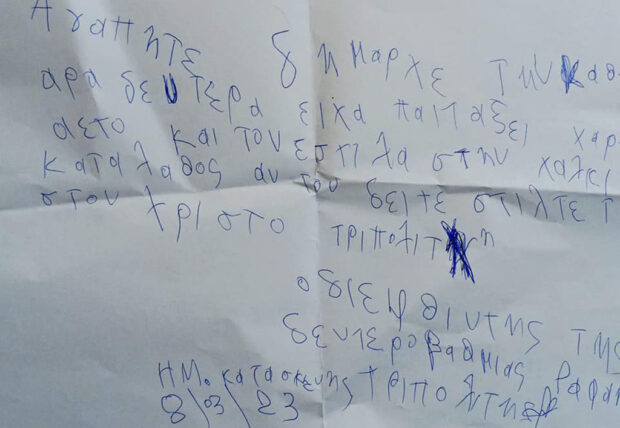 Αγαπητε δημαρχε την καθ
αρα δευτερα ειχα παιταξει χαρ
αετο και τον εστιλα στην χαλκι
κατα λαθος αν τον δειτε στιλτε τ
στον χριστο τριπολιτη
ο διευθιντης της
δευτεροβαθμιας
ΗΜ. κατασκευης τριπολιτη
8/03/23